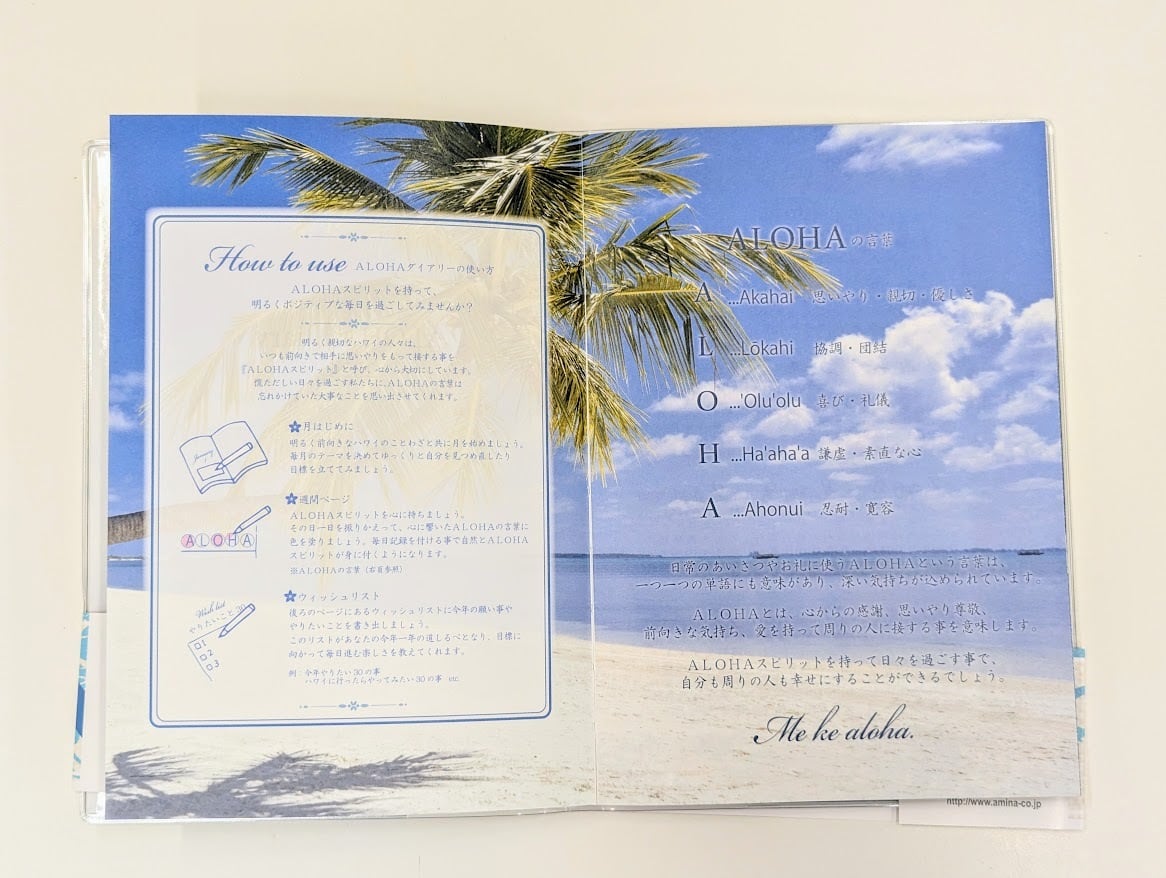 How to use ALOHAダイアリーの使い方
ALOHAスピリットを持って、
明るくポジティブな毎日を過ごしてみませんか？
明るく親切なハワイの人々は、
いつも前向きで相手に思いやりをもって接する事を
『ALOHAスピリット』と呼び、心から大切にしています。
慌ただしい日々を過ごす私たちに、ALOHAの言葉は
忘れかけていた大事なことを思い出させてくれます。
月はじめに
明るく前向きなハワイのことわざと共に月を始めましょう。
毎月のテーマを決めてゆっくりと自分を見つめ直したり
目標を立ててみましょう。
週間ページ
ALOHAスピリットを心に持ちましょう。
その日一日を振りかえって、心に響いたALOHAの言葉に
色を塗りましょう。毎日記録を付ける事で自然とALOHA
スピリットが身に付くようになります。
※ALOHAの言葉（右頁参照）
ALOHA
ウィッシュリスト
後ろのページにあるウィッシュリストに今年の願い事や
やりたいことを書き出しましょう。
このリストがあなたの今年一年の道しるべとなり、目標に
向かって毎日進む楽しさを教えてくれます。
例：今年やりたい30の事
ハワイに行ったらやってみたい30の事 etc.
Wish list
やりたいこと30
1
2
3
ALOHAの言葉
A ...Akahai 思いやり・親切・優しさ
L ...Lōkahi 協調・団結
O ...'Olu'olu 喜び・礼儀
H ...Ha'aha'a 謙虚・素直な心
A ...Ahonui 忍耐・寛容
日常のあいさつやお礼に使うALOHAという言葉は、
一つ一つの単語にも意味があり、深い気持ちが込められています。
ALOHAとは、心からの感謝、思いやり尊敬、
前向きな気持ち、愛を持って周りの人に接する事を意味します。
ALOHAスピリットを持って日々を過ごす事で、
自分も周りの人も幸せにすることができるでしょう。
Me ke aloha.
http://www.amina-co.jp